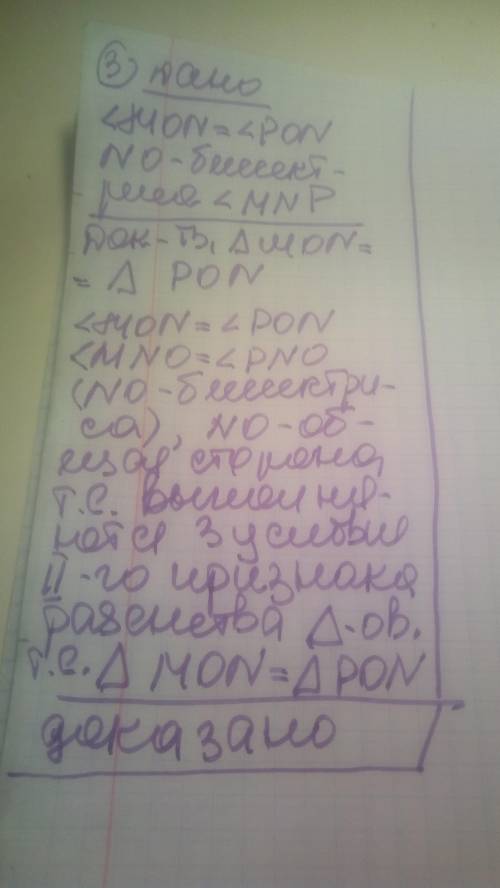 ③ Дано
<MON=<PON
NO-биссект-
риса <MNP
Док-ть ∆MON=
=∆ PON
<MON=<PON
<MNO=<PNO
(NO-биссектри-
са), NO-об-
щая сторона,
т.е. выполня-
ются 3 условия
II-го признака
равенства ∆-ов.
т.е. ∆ MON=∆PON
доказано